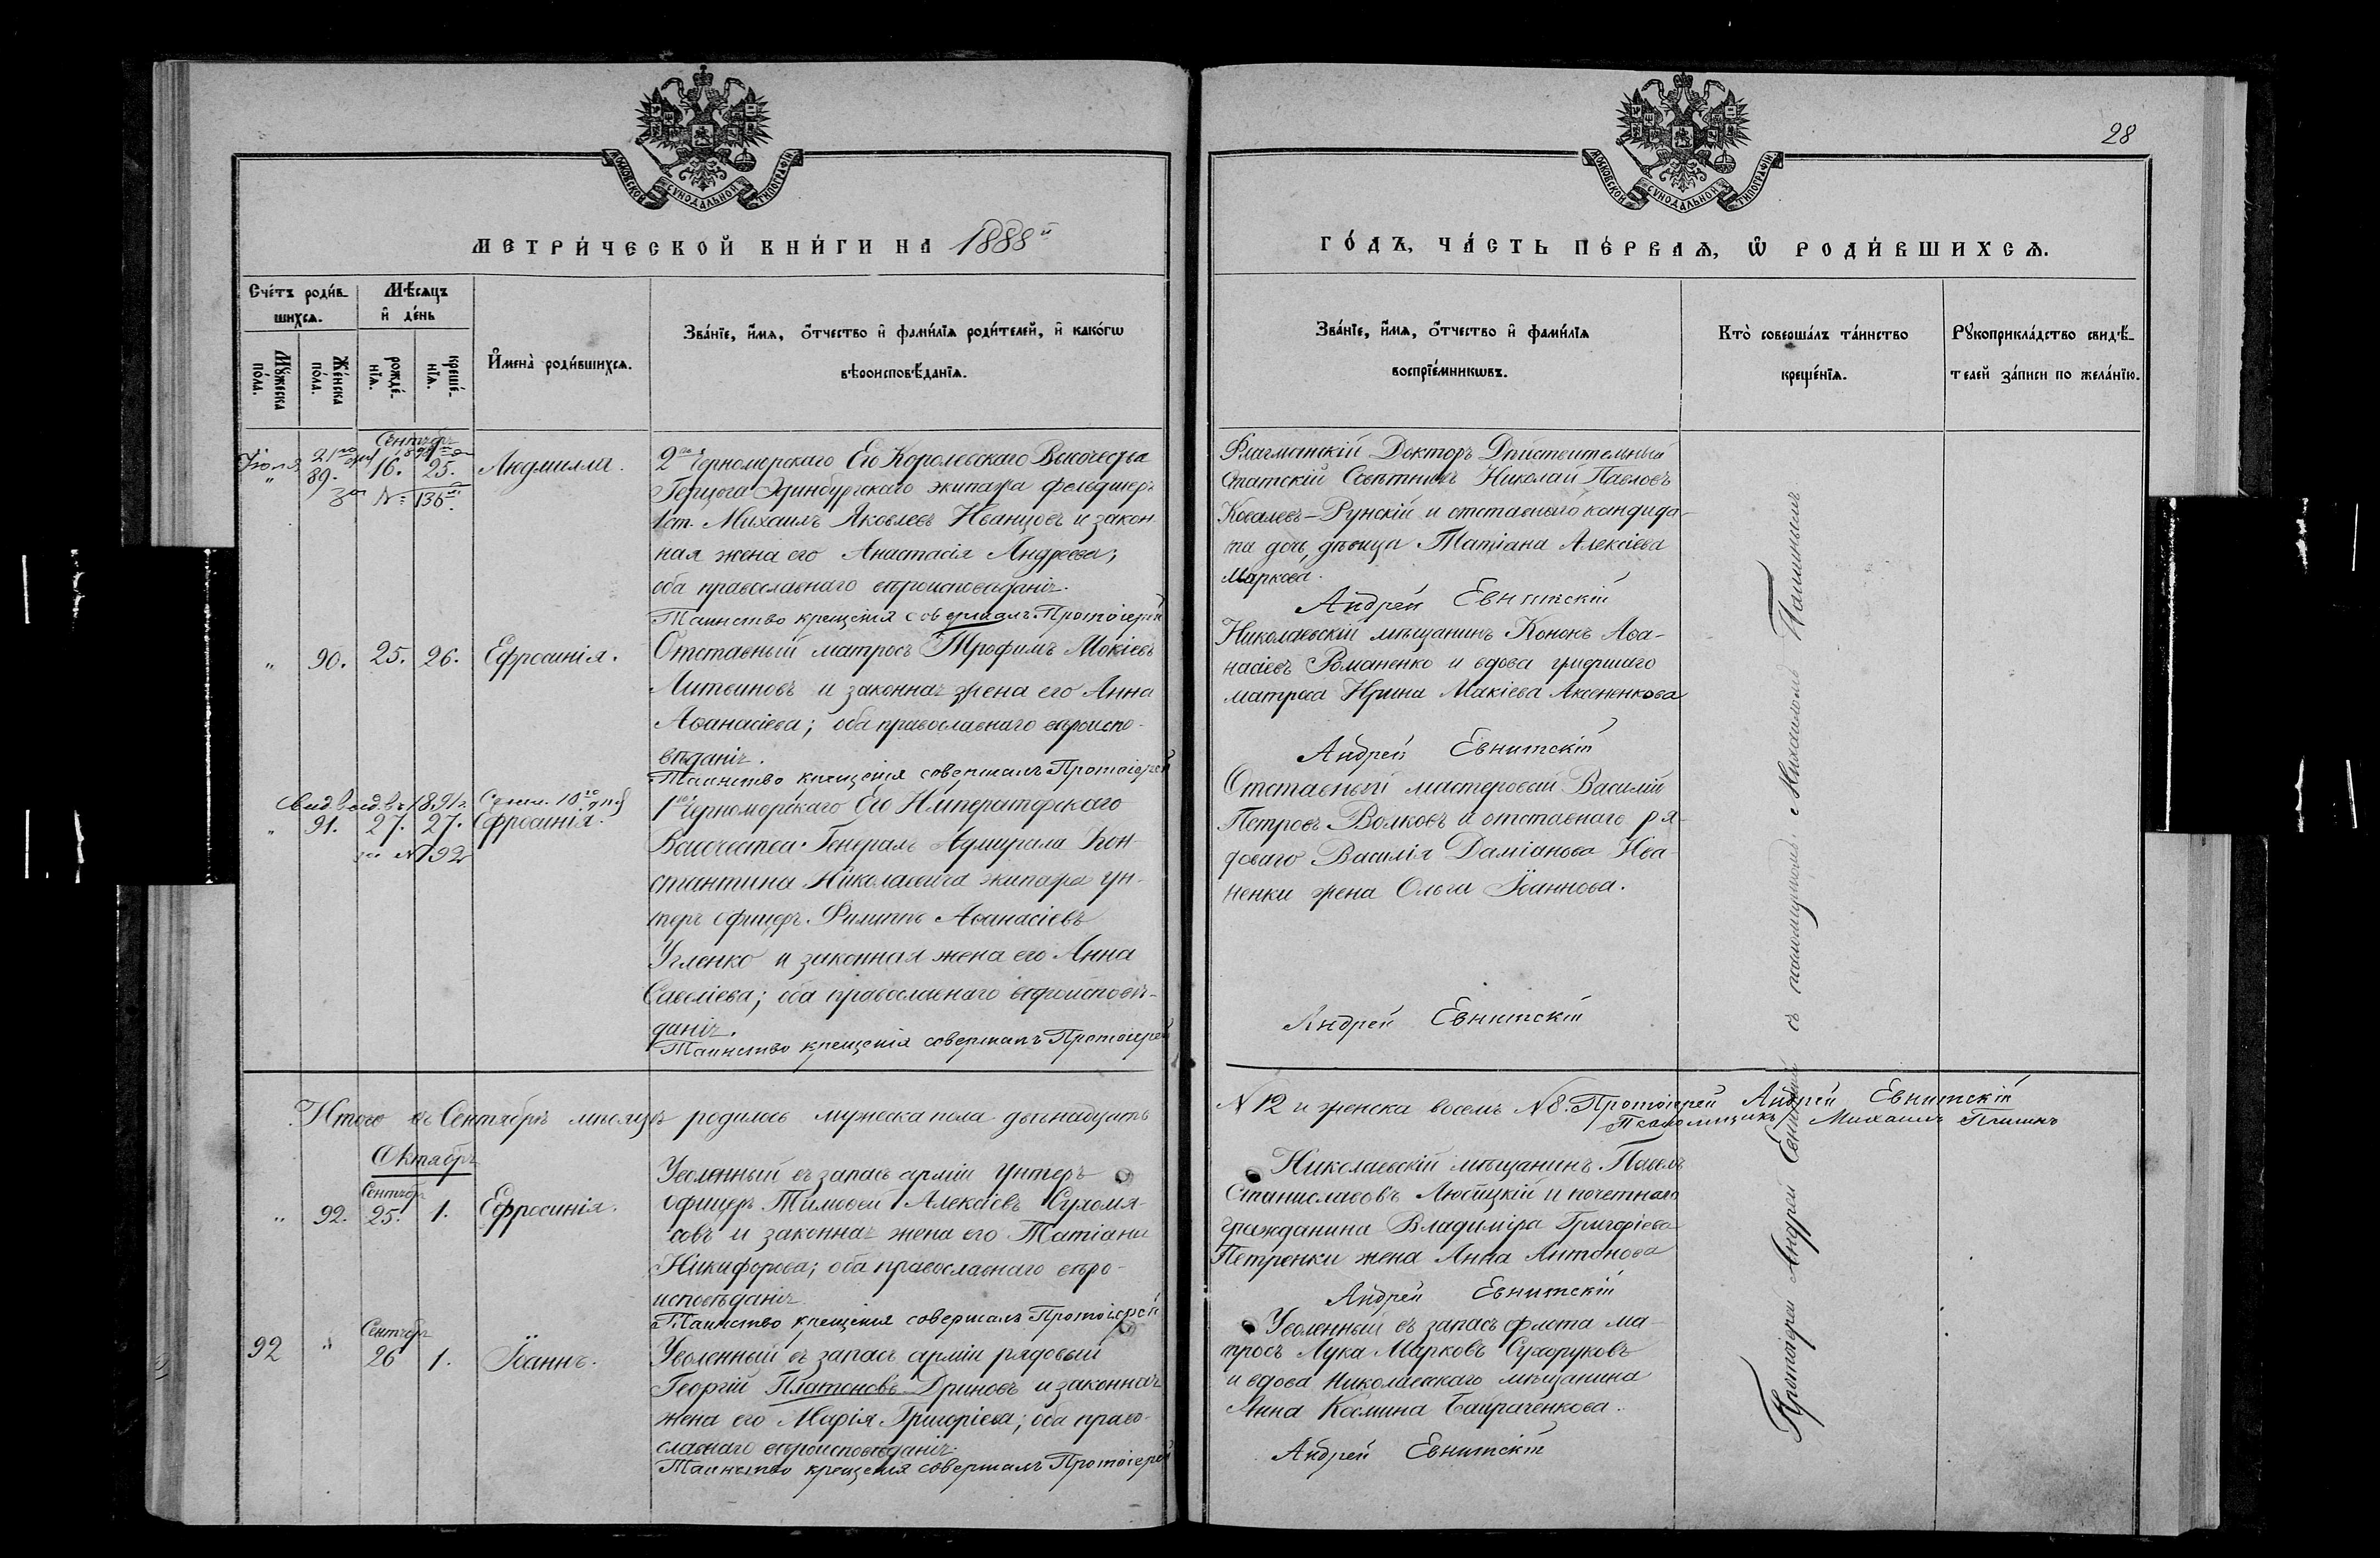 28
МОСКОВСКОЙ СУНОДАЛЬНОЙ ТИПОГРАФІИ
МОСКОВСКОЙ СУНОДАЛЬНОЙ ТИПОГРАФІИ
МЕТРИ́ЧЕСКОЙ КНИ́ГИ НА 1888й
ГО́ДЪ, ЧА́СТЬ ПЕ́РВАЯ, Ѡ РОДИ́ВШИХСЯ.
Сче́тъ роди́в-
шихся.
Мѣ́сяцъ
и де́нь
Мꙋ́жеска по́ла.
Же́нска по́ла.
рожде́-нїя.
креще́-нїя.
Имена̀ роди́вшихся.
Зва́нїе, и́мя, о́тчество и фами́лїя роди́телей, и како́гѡ
вѣроисповѣ́данїя.
Зва́нїе, и́мя, о́тчество и фами́лїя
воспрїе́мникѡвъ.
Кто̀ соверша́лъ та́инство
креще́нїя.
Рꙋкоприкла́дство свидѣ́-
телей за́писи по жела́нїю.
Сентябрь
" 89. 16. 25. Людмилла.
за № 136
2го Черноморскаго Его Королевскаго Высочества
Герцога Эдинбургскаго экипажа фельдшеръ
1 ст. Михаилъ Яковлевъ Иванцовъ и закон-
ная жена его Анастасія Андреева;
оба православнаго вѣроисповѣданія.
Таинство крещенія совершалъ Протоіерей
Флагманскій Докторъ Дѣйствительный
Статскій Совѣтникъ Николай Павловъ
Ковалевъ-Рунскій и отставнаго кандида-
та дочь, дѣвица Татіана Алексіева
Маркова.
Андрей Евнитскій
" 90. 25. 26. Ефросинія.
Отставный матросъ Трофимъ Мокіевъ
Литвиновъ и законная жена его Анна
Аѳанасіева; оба православнаго вѣроиспо-
вѣданія.
Таинство крещенія совершалъ Протоіерей
Николаевскій мѣщанинъ Кононъ Аѳа-
насіевъ Романенко и вдова умершаго
матроса Ирина Макіева Аксененкова
Андрей Евнитскій
Свид. выд. въ 1891г. Сент. 10го дня
" 91. 27. 27. Ефросинія.
за № 192
1го Черноморскаго Его Императорскаго
Высочества Генералъ Адмирала Кон-
стантина Николаевича экипажа ун-
теръ офицеръ Филиппъ Аѳанасіевъ
Угленко и законная жена его Анна
Савеліева; оба православнаго вѣроисповѣ-
данія.
Таинство крещенія совершалъ Протоіерей
Отставный мастеровый Василій
Петровъ Волковъ и отставнаго ря-
доваго Василія Даміанова Ива-
ненки жена Ольга Іоаннова.
Андрей Евнитскій
Итого въ Сентябрѣ мѣсяцѣ родилось мужеска пола двѣнадцать
№ 12 и женска восемь № 8. Протоіерей Андрей Евнитскій
Псаломщикъ Михаилъ
Октябрь
Сентябр
" 92. 25. 1. Ефросинія.
Уволенный въ запасъ арміи унтеръ
офицеръ Тимоѳей Алексіевъ Сухомя-
совъ и законная жена его Татіана
Никифорова; оба православнаго вѣро-
исповѣданія.
Таинство крещенія совершалъ Протоіерей
Николаевскій мѣщанинъ Павелъ
Станиславовъ и почетнаго
гражданина Владиміра Григоріева
Петренки жена Анна Антонова
Андрей Евнитскій
Сентябр
92 " 26 1. Іоаннъ.
Уволенный въ запасъ арміи рядовый
Георгій Платоновъ Дриновъ и законная
жена его Марія Григоріева; оба право-
славнаго вѣроисповѣданія.
Таинство крещенія совершалъ Протоіерей
Уволенный въ запасъ флота ма-
тросъ Лука Марковъ Сухоруковъ
и вдова Николаевскаго мѣщанина
Анна Космина Байраченкова.
Андрей Евнитскій
Протоіерей Андрей Евнитскій съ псаломщикомъ Михаиломъ